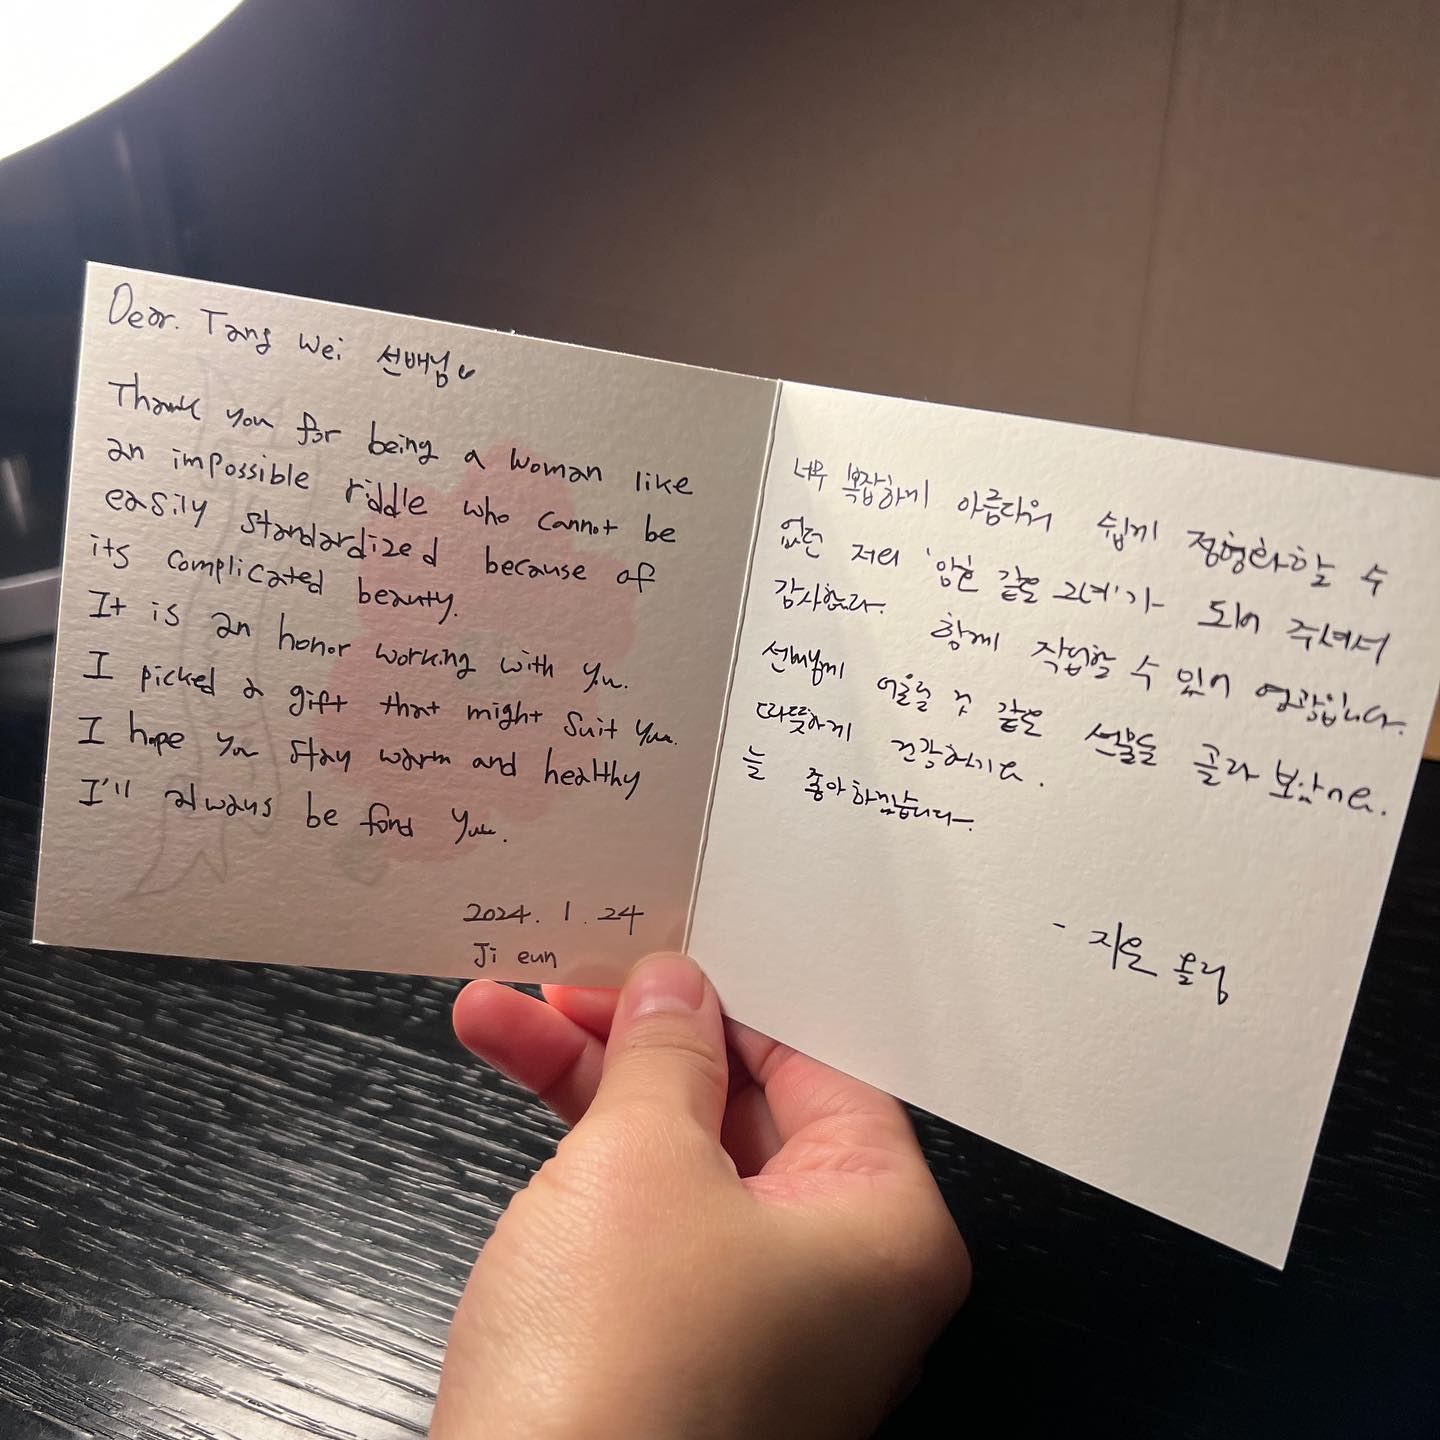 Dear. Tang Wei 선배님
Thank you for being a woman like
an impossible riddle who cannot be
easily standardized because of
its complicated beauty.
It is an honor working with you.
I picked a gift that might suit you.
I hope you stay warm and healthy
I'll always be fond you.
2024. 1. 24
Ji eun
너무 복잡하게 아름다워 쉽게 정형화할 수
없던 저의 '암호 같은 그녀'가 되어 주셔서
감사합니다. 함께 작업할 수 있어 영광입니다.
선배님께 어울릴 것 같은 선물을 골라 보았어요.
따뜻하게 건강하기요.
늘 좋아하겠습니다.
- 지은 올림